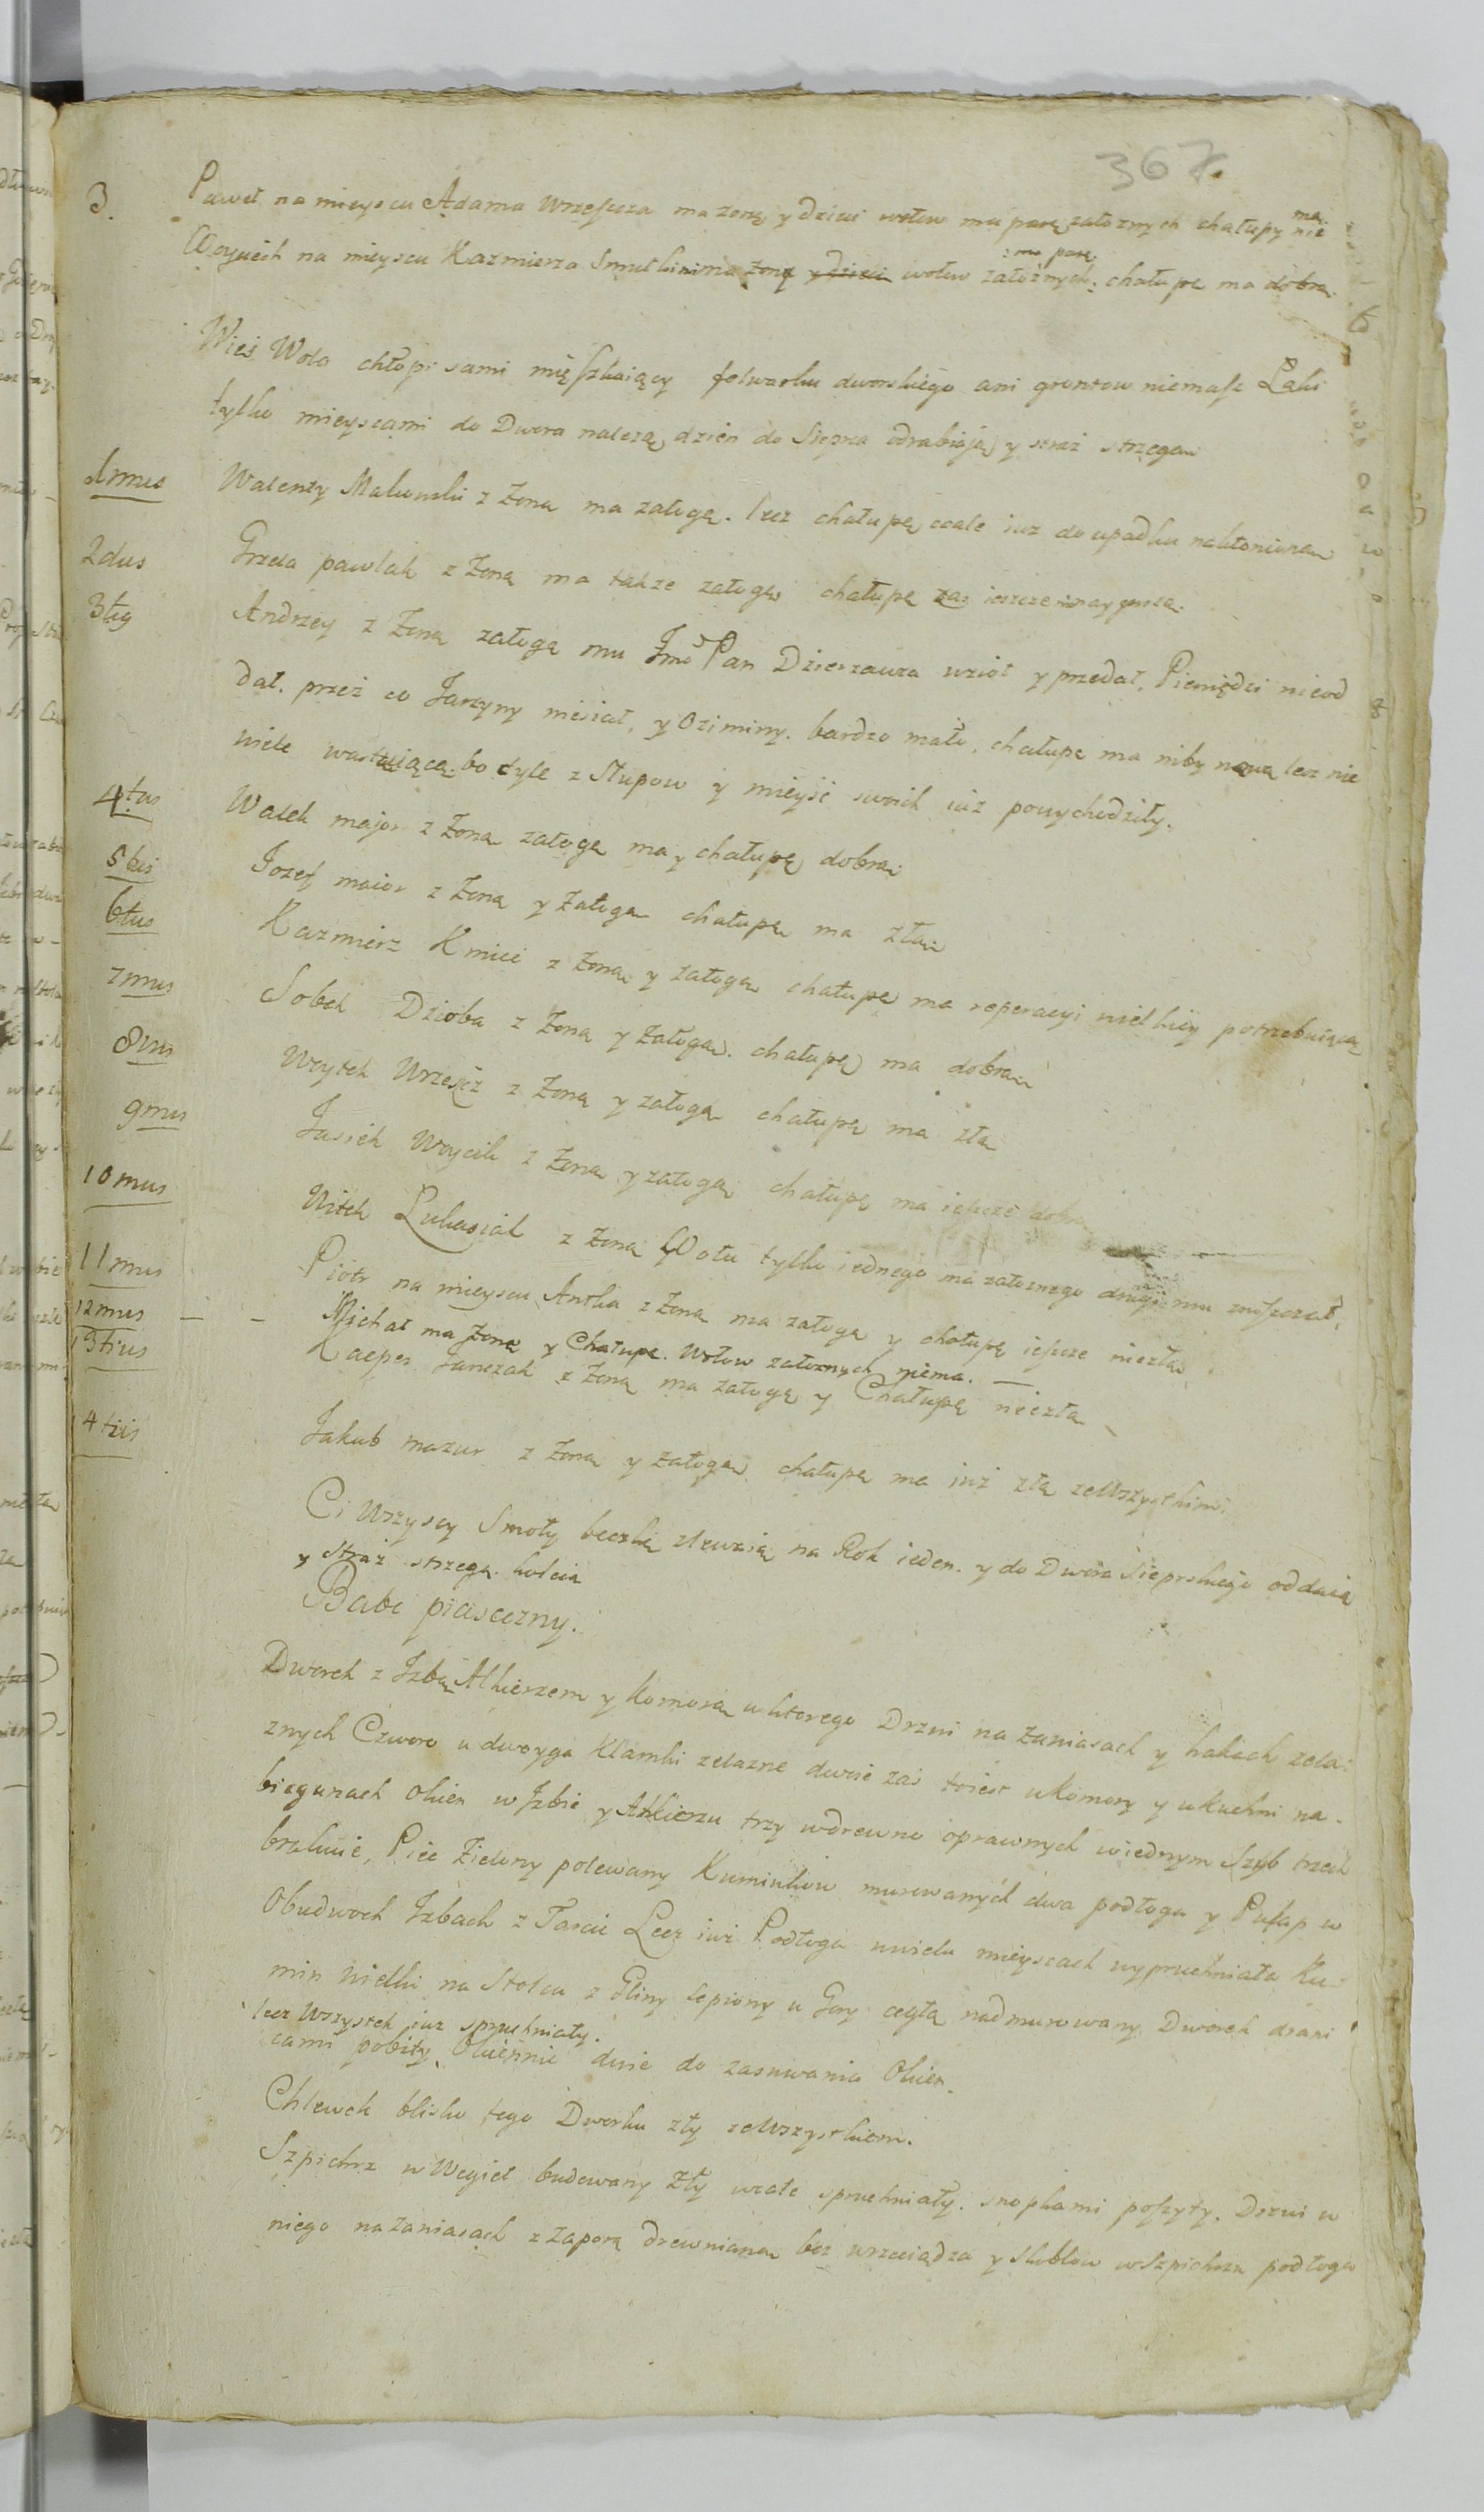 367.
3. Paweł na mieyscu Adama Wrzeszcza ma zonę y dzieci wołow ma parę załoznych chałupy nie ma
Woyciech na mieyscu Kazmierza Smutkini ma zonę y dzieci wołow załoznych ma parę chałupę ma dobrą.
Wieś Wola chłopi sami mięszkaiący folwarku dworskiego ani gruntow niemasz Łąki
tylko mieyscami do Dwora nalezą, dzień do Siepca odrabiaią y straż strzegą
1mus Walenty Makowski z Zoną ma załogę. lecz chałupę cale iuz do upadku nakłonioną
2dus Grzela pawlak z Zoną ma takze załogę chałupę zas ieszcze
3tig Andrzey z Zoną załogę mu Jmć Pan Dzierzawca wziął y przedał, Pieniędzi nieod
dał. przez co Jarzyny niesiał, y Oziminy. bardzo mało, chałupę ma niby nową lecz nie
wiele wartaiącą. bo dyle z słupow y mieysc swoich iuż powychodziły.
4tus Walek major z Zoną załogę ma y chałupę dobrą
5tus Jozef maior z Zoną y Załogą chałupę ma złą
6tus Kazmierz Kmieć z Zoną y załogą chałupę ma reperacyi wielkiey potrzebuiącą
7mus Sobek Dzióba z Zoną y Załogą. chałupę ma dobrą
8vus Woytek Wrzeszcz z Zoną y załogą chałupę ma złą
9mus Jasiek Woycik z Zoną y załogą chałupę ma ieszcze dobrą
10mus Witek Łukasiak z Zoną Wołu tylko iednego ma załoznego drugi mu
11mus Piotr na mieyscu Antka z Zoną ma załogę y chałupę ieszcze niezłą
12mus — – Michał ma Zonę y Chałupę. Wołow załoznych niema. —
13tius Kacper Janczak z Zoną ma załogę y Chałupę niezłą
14tus Jakub mazur z Zoną y załogą chałupę ma iuż złą zewszystkim
Ci Wszyscy Smoły beczkę na Rok ieden. y do Dwora Sieprskiego oddaią
y straż strzegą. koleią
Babe piasczny.
Dworek z Izbą Alkierzem y Komorą uktorego Drzwi na Zaniasach y hakach zela:
znych Czworo u dwoyga Klamki zelazne dwoie zaś toiest ukomory y ukuchni na
biegunach okien w Izbie y Alkierzu trzy wdrewno oprawnych wiednym Szyb trzech
brakuie, Piec Zielony polewany Kuminkow murowanych dwa podłoga y Pułap w
Obudwoch Izbach z Tarcic Lecz iuż Podłoga uwielu mieyscach wypruchniała Ku:
min wielki na Stolcu z Gliny lepiony u Gory cegłą nadmurowany Dworek drani
cami pobity lecz Wszystek iuz spruchniały. Okiennic dwie do zasuwania Okien.
Chlewek blisko tego Dworku zły zewszystkiem.
Szpichrz w Węgieł budowany Zły wcale spruchniały. snopkami poszyty. Drzwi u
niego nazaniasach z Zaporą drewnianą bez wrzeciądza y skoblow wszpichrzu podłoga